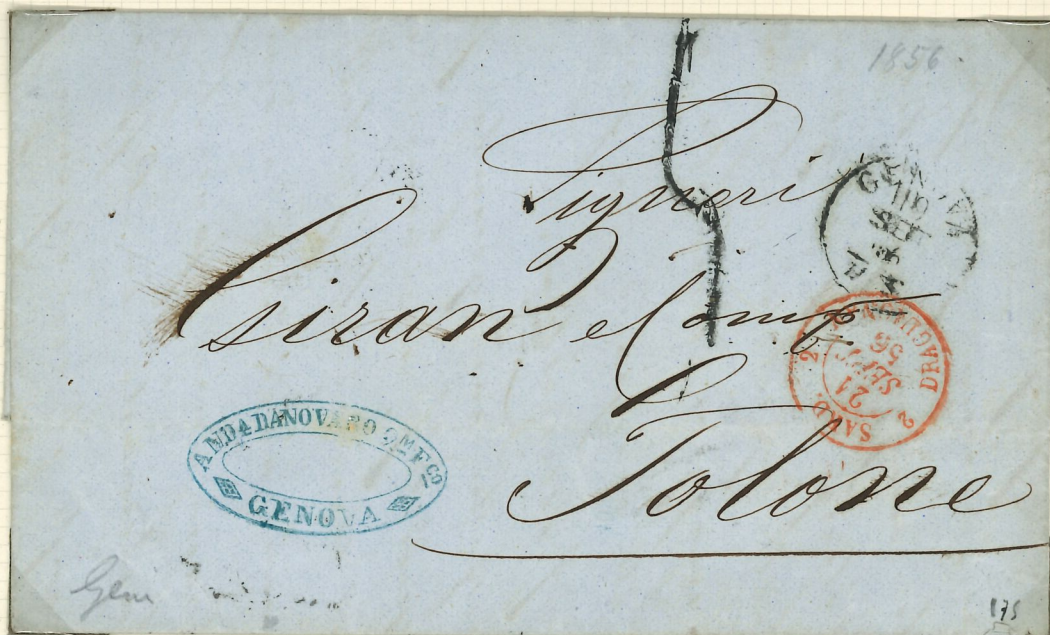 1856.
5
Signori
Giran e Comp
Tolone
GENOVA
SET
56
SARD. 2 DRAGUIGNAN 2
21
SEPT
56
ANDA DANOVARO
GENOVA
Gen
175